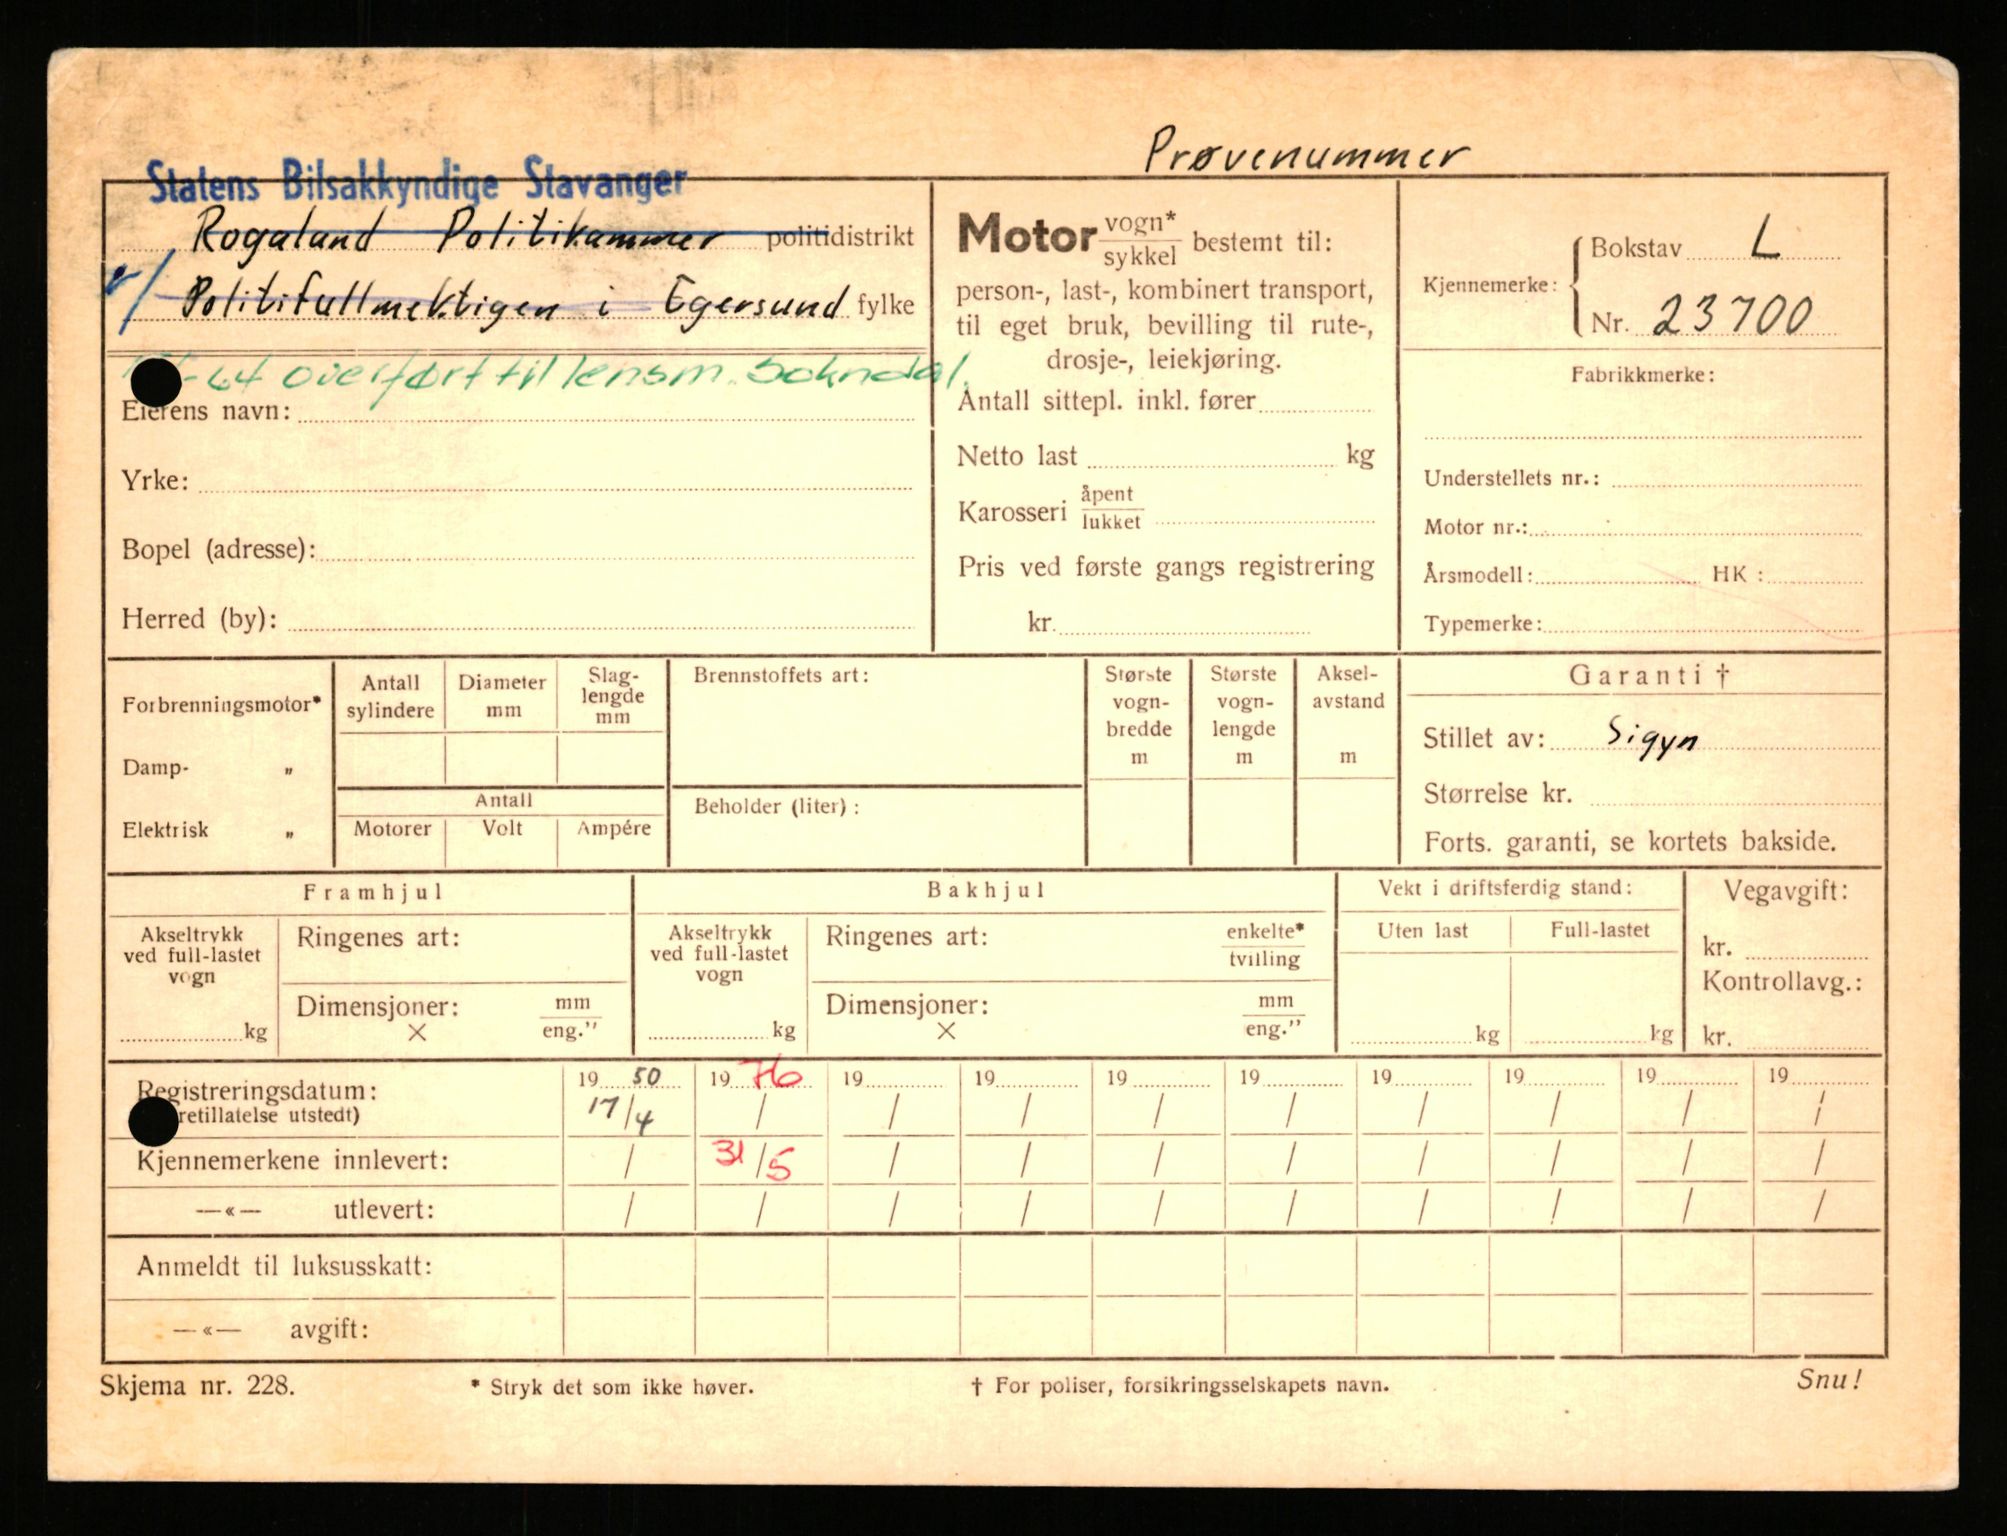 Prøvenummer
Statens Bilsakkyndige Stavanger
Rogaland Politikammer politidistrikt
v/ Politifullmektigen i Egersund fylke
-64 overført til lensm. Sokndal.
Eierens navn:
Yrke:
Bopel (adresse):
Herred (by):
Motor vogn* / sykkel bestemt til:
person-, last-, kombinert transport,
til eget bruk, bevilling til rute-,
drosje-, leiekjøring.
Antall sittepl. inkl. fører
Netto last kg
Karosseri åpent / lukket
Pris ved første gangs registrering
kr.
Kjennemerke: Bokstav L
Nr. 23700
Fabrikkmerke:
Understellets nr.:
Motor nr.:
Årsmodell: HK:
Typemerke:
Forbrenningsmotor*
Damp- „
Elektrisk „
Antall sylindere
Diameter mm
Slag-lengde mm
Antall
Motorer Volt Ampére
Brennstoffets art:
Beholder (liter):
Største vogn-bredde m
Største vogn-lengde m
Aksel-avstand m
Garanti †
Stillet av: Sigyn
Størrelse kr.
Forts. garanti, se kortets bakside.
Framhjul
Akseltrykk ved full-lastet vogn
kg
Ringenes art:
Dimensjoner: mm / eng.”
×
Bakhjul
Akseltrykk ved full-lastet vogn
kg
Ringenes art: enkelte* / tvilling
Dimensjoner: mm / eng.”
×
Vekt i driftsferdig stand:
Uten last Full-lastet
kg kg
Vegavgift:
kr.
Kontrollavg.:
kr.
Registreringsdatum: 19 50 19 76 19 19 19 19 19 19 19 19
retillatelse utstedt) 17/4 / / / / / / / / /
Kjennemerkene innlevert: / 31/5 / / / / / / / /
—«— utlevert: / / / / / / / / / /
Anmeldt til luksusskatt:
—«— avgift:
Skjema nr. 228.
* Stryk det som ikke høver.
† For poliser, forsikringsselskapets navn.
Snu!